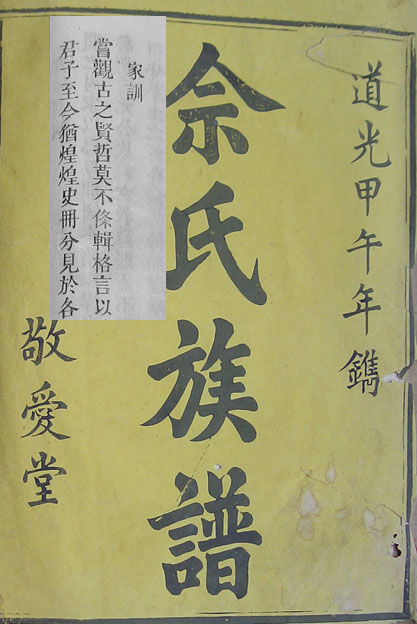 道光甲午年鐫
佘氏族譜
敬愛堂
家訓
嘗觀古之賢哲莫不條輯格言以
君子至今猶煌煌史冊分見於各